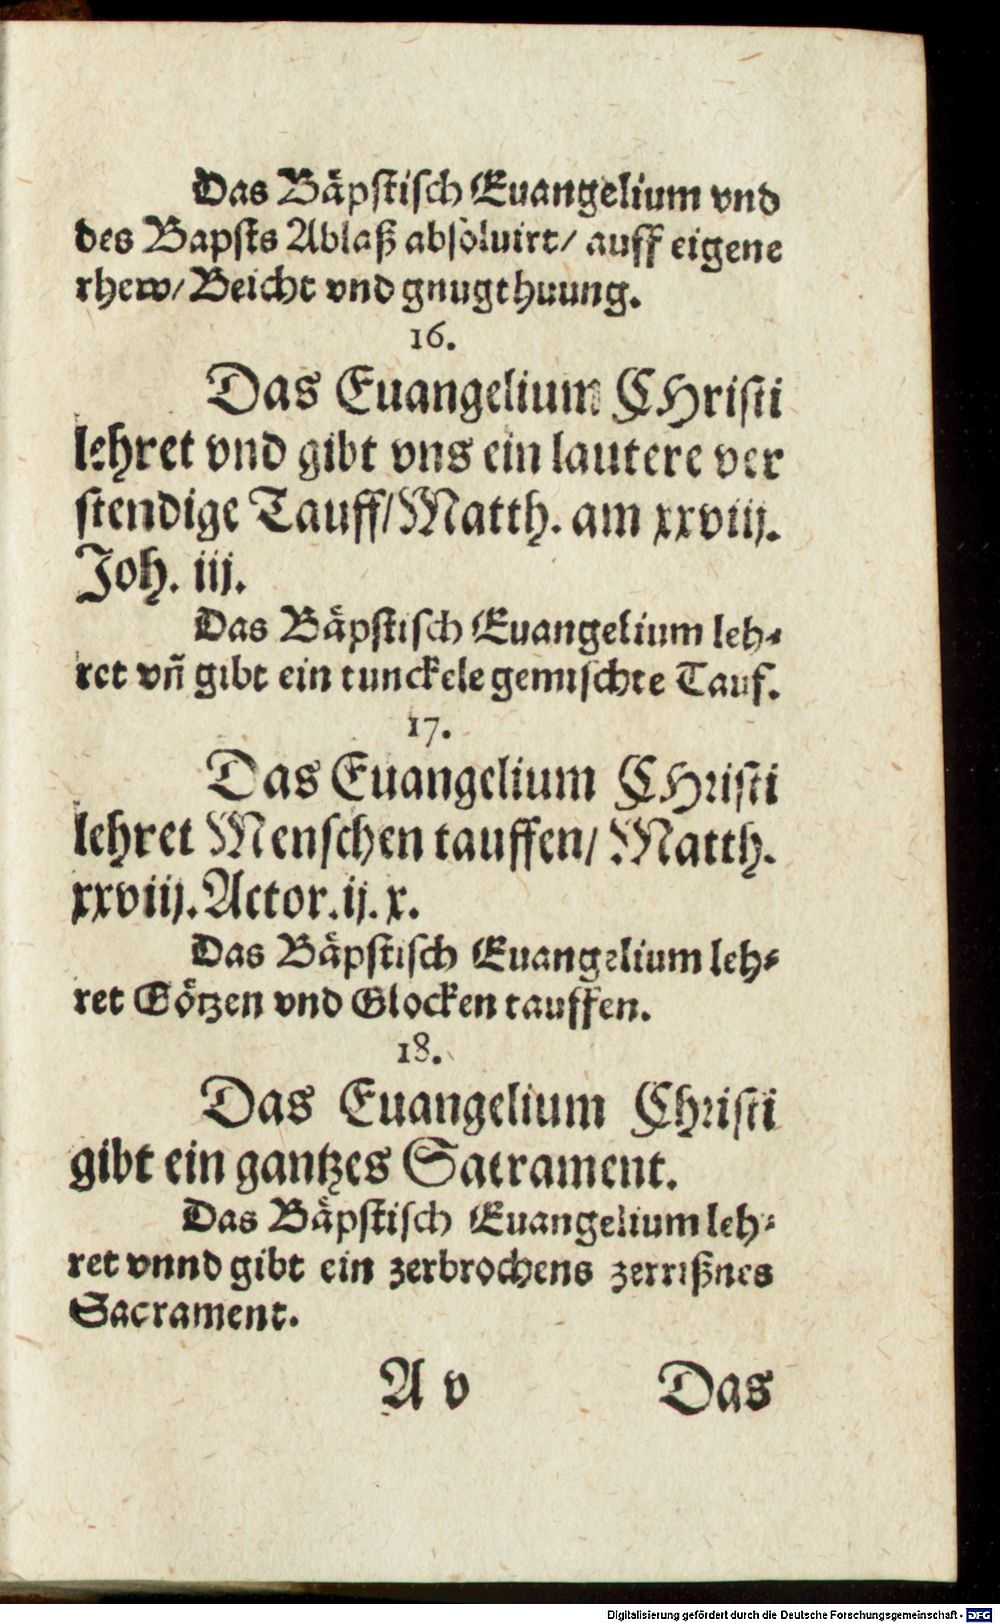 Das Bäpſtiſch Euangelium vnd
des Bapſts Ablaß abſoluirt/ auff eigene
rhew/ Beicht vnd gnugthuung.
16.
Das Euangelium CHriſti
lehret vnd gibt vns ein lautere ver
ſtendige Tauff/ Matth. am xxviij.
Joh. iij.
Das Bäpſtiſch Euangelium leh⸗
ret vñ gibt ein tunckele gemiſchte Tauf.
17.
Das Euangelium CHriſti
lehret Menſchen tauffen/ Matth.
xxviij. Actor. ij. x.
Das Bäpſtiſch Euangelium leh⸗
ret Götzen vnd Glocken tauffen.
18.
Das Euangelium Chriſti
gibt ein gantzes Sacrament.
Das Bäpſtiſch Euangelium leh⸗
ret vnnd gibt ein zerbrochens zerrißnes
Sacrament.
A v Das
Digitalisierung gefördert durch die Deutsche Forschungsgemeinschaft - DFG